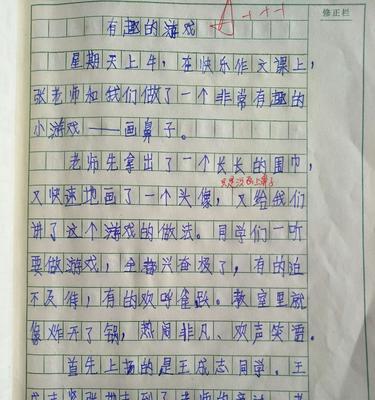 修正栏
有趣的游戏 A+++
星期天上牛，在快乐作文课上，
张老师和我们做了一个非常有趣的
小游戏——画鼻子。
老师先拿出了一个长长的围巾，
只是没画上鼻子
又快速地画了一个头像，又给我们
讲了这个游戏的做法。同学们一听
要做游戏，全都兴奋极了，有的迫
不及待，有的欢呼雀跃。教室里就
像炸开了锅，热闹非凡、欢声笑语。
首先上场的是王成志同学。王